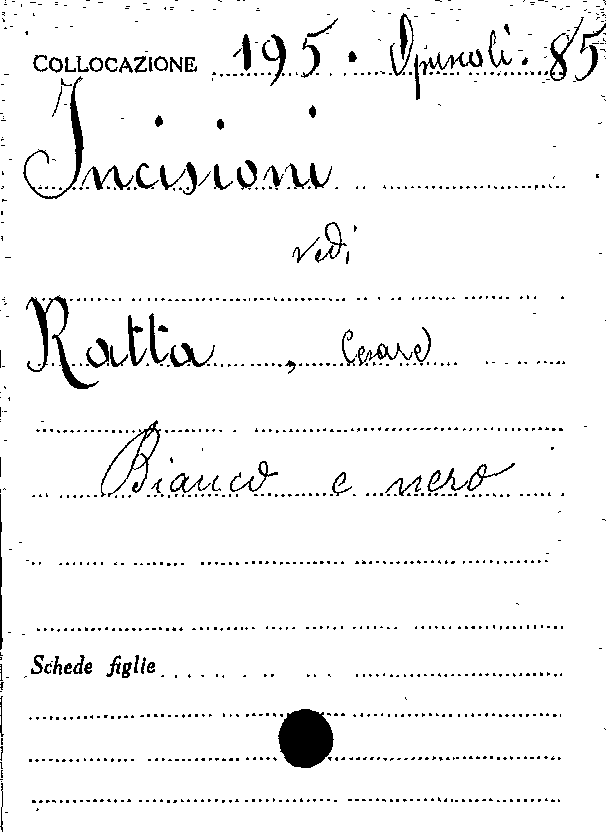 COLLOCAZIONE 195. Opuscoli. 85
Incisioni
vedi
Ratta, Cesare
Bianco e nero
Schede figlie